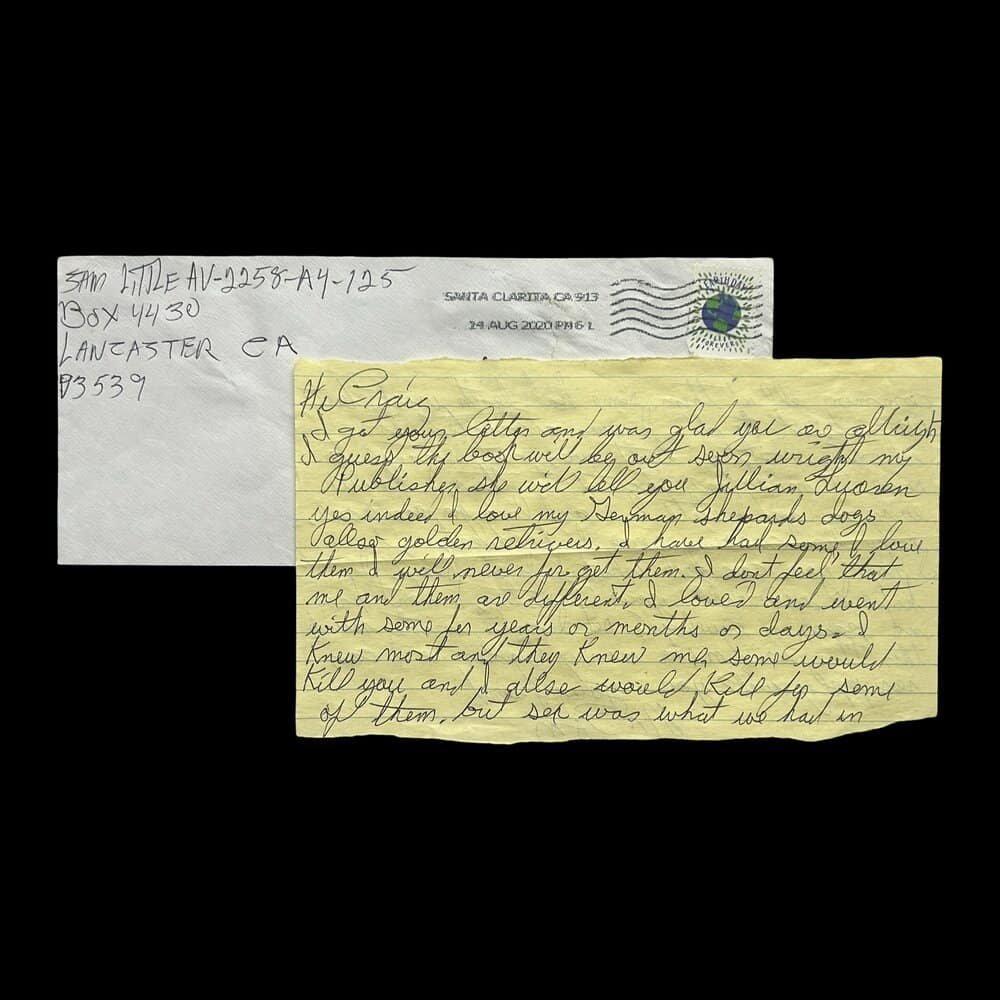 SAM LITTLE AV-2258-A4-125
BOX 4430
LANCASTER CA
93539
SANTA CLARITA CA 913
14 AUG 2020 PM 6 L
EARTH DAY
FOREVER
Hi Craig
I got your letter and was glad you are allright
I guess the book will be out soon wright my
Publisher she will tell you Jillian
yes indeed I love my German Shepards dogs
allso golden retrivers. I have had some I love
them I will never for get them. I dont feel that
me and them are different. I loved and went
with some for years or months or days. I
Knew most and they Knew me some would
Kill you and I allso would Kill for some
of them. but sex was what we had in